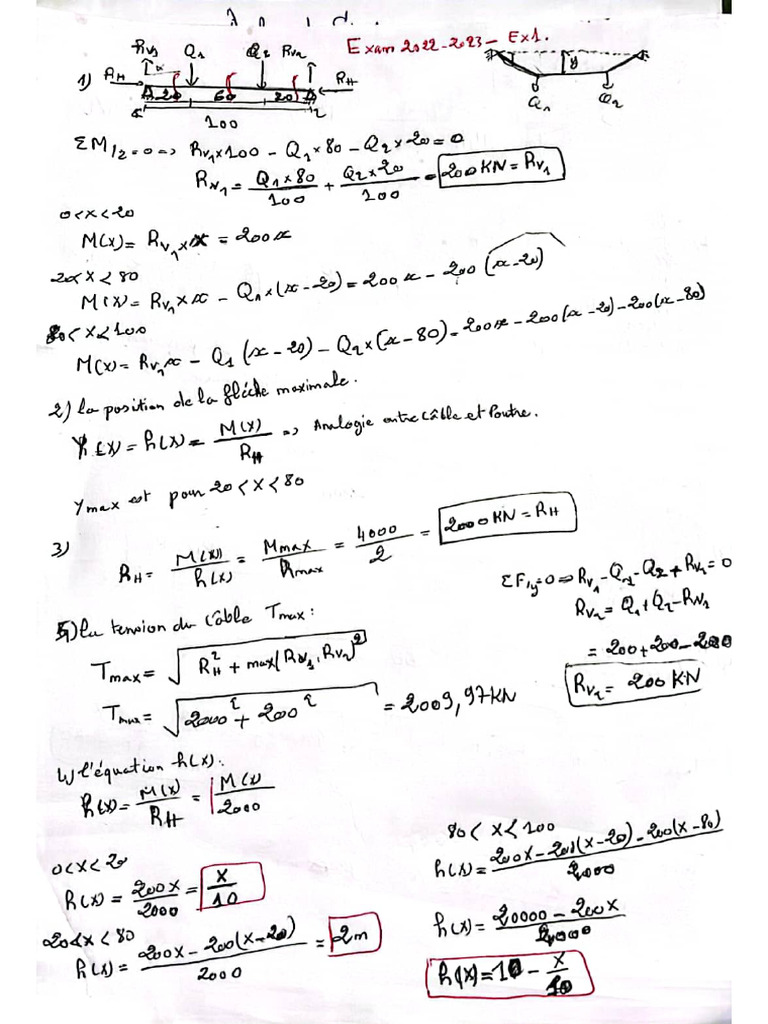 Exam 2022-2023 - Ex1.
Rv1 Q1 Q2 Rv2
1) RH RH
20 60 20
1 2
100
y
Q1 Q2
ΣM/2 = 0 => Rv1×100 - Q1×80 - Q2×20 = 0
Rv1 = Q1×80/100 + Q2×20/100 = 200KN = Rv1
0<x<20
M(x) = Rv1 × x = 200x
20<x<80
M(x) = Rv1 × x - Q1×(x-20) = 200x - 200(x-20)
80<x<100
M(x) = Rv1x - Q1(x-20) - Q2×(x-80) = 200x - 200(x-20) - 200(x-80)
2) la position de la flèche maximale.
Y(x) = h(x) = M(x)/RH => Analogie entre Câble et Poutre.
Ymax est pour 20<x<80
3)
RH = M(x)/h(x) = Mmax/hmax = 4000/2 = 2000KN = RH
ΣF/y=0 => Rv1-Q1-Q2+Rv2=0
Rv2 = Q1+Q2-Rv1
= 200+200-200
Rv2 = 200KN
5) la tension du câble Tmax:
Tmax = √(RH² + max(Rv1, Rv2)²)
Tmax = √(2000² + 200²) = 2009,97KN
4) l'équation h(x):
h(x) = M(x)/RH = M(x)/2000
0<x<20
h(x) = 200x/2000 = x/10
20<x<80
h(x) = 200x - 200(x-20)/2000 = 2m
80<x<100
h(x) = 200x - 200(x-20) - 200(x-80)/2000
h(x) = 20000 - 200x/2000
h(x) = 10 - x/10